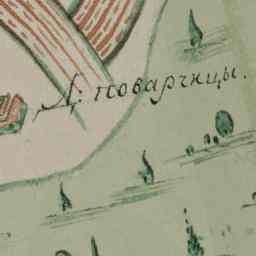 Д: поварницы.